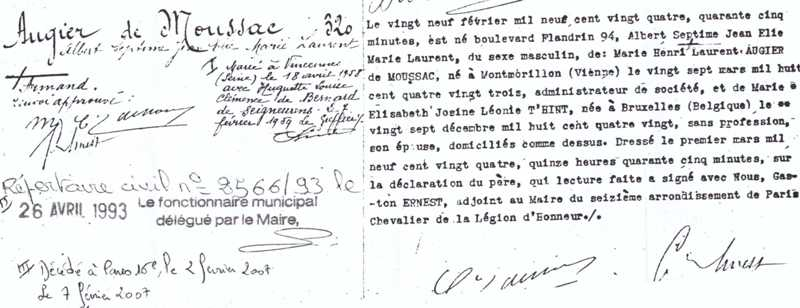 Augier de Moussac 320
Albert Septime Jean Elie Marie Laurent
I Marié à Vincennes
(Seine) le 18 avril 1958
avec Huguette Louise
Clémence de Bernard
de Seigneurens
février 1959
I Armand
renvoi approuvé
Ernest
Répertoire civil n° 8566/93 le
II 26 AVRIL 1993 Le fonctionnaire municipal
délégué par le Maire,
III Décédé à Paris 16e, le 2 février 2007
Le 7 février 2007
Le vingt neuf février mil neuf cent vingt quatre, quarante cinq
minutes, est né boulevard Flandrin 94, Albert Septime Jean Elie
Marie Laurent, du sexe masculin, de: Marie Henri Laurent AUGIER
de MOUSSAC, né à Montmôrillon (Vienne) le vingt sept mars mil huit
cent quatre vingt trois, administrateur de société, et de Marie
Elisabeth Josine Léonie T'HINT, née à Bruxelles (Belgique) le
vingt sept décembre mil huit cent quatre vingt, sans profession,
son épouse, domiciliés comme dessus. Dressé le premier mars mil
neuf cent vingt quatre, quinze heures quarante cinq minutes, sur
la déclaration du père, qui lecture faite a signé avec Nous, Gas-
-ton ERNEST, adjoint au Maire du seizième arrondissement de Paris
Chevalier de la Légion d'Honneur./.
Ernest